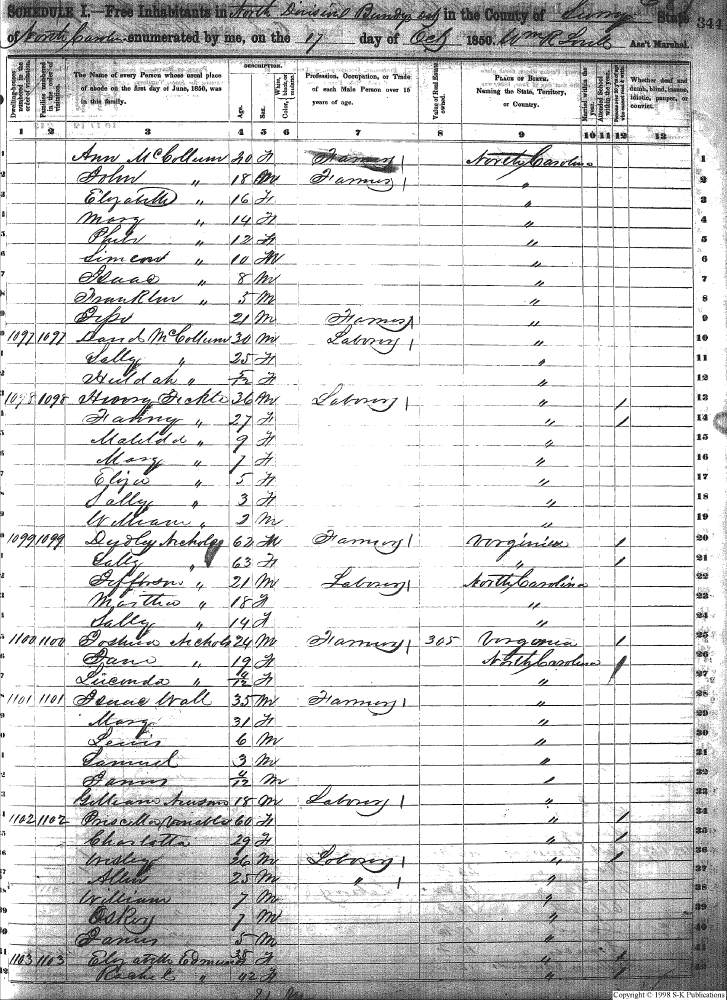 SCHEDULE I.—Free Inhabitants in North Division in the County of Surry State
of North Carolina enumerated by me, on the 17 day of Oct 1850. Wm R Ass't Marshal. 344
Dwelling-houses numbered in the order of visitation.
Families numbered in the order of visitation.
The Name of every Person whose usual place of abode on the first day of June, 1850, was in this family.
DESCRIPTION.
Age.
Sex.
Color, White, black, or mulatto.
Profession, Occupation, or Trade of each Male Person over 15 years of age.
Value of Real Estate owned.
PLACE OF BIRTH. Naming the State, Territory, or Country.
Married within the year.
Attended School within the year.
Whether deaf and dumb, blind, insane, idiotic, pauper, or convict.
1 2 3 4 5 6 7 8 9 10 11 12 13
1 Ann McCollum 20 F Farmer North Carolina 1
2 John " 18 M Farmer " 2
3 Elizabeth " 16 F " 3
4 Mary " 14 F " 4
5 " 12 F " 5
6 Simeon " 10 M " 6
7 Isaac " 8 M " 7
8 Franklin " 5 M " 8
9 21 M Farmer " 9
10 1097 1097 David McCollum 30 M Labour " 10
11 Sally " 25 F " 11
12 Huldah " /12 F " 12
13 1098 1098 36 M Labour " / 13
14 27 F " / 14
15 Matilda " 9 F " 15
16 Mary " 7 F " 16
17 Eliza " 5 F " 17
18 Sally " 3 F " 18
19 William " 2 M " 19
20 1099 1099 Dudley Nichols 62 M Farmer Virginia / 20
21 Sally " 63 F " / 21
22 Jefferson " 21 M Labour North Carolina 22
23 Martha " 18 F " 23
24 Sally " 14 F " 24
25 1100 1100 Joshua Nichols 24 M Farmer 305 Virginia / 25
26 Jane " 19 F North Carolina / 26
27 Lucinda " /12 F " 27
28 1101 1101 Isaac Wall 35 M Farmer " 28
29 Mary 31 F " 29
30 Lewis 6 M " 30
31 Samuel 3 M " 31
32 James /12 M " 32
33 18 M Labour " 33
34 1102 1102 Priscilla Venable 60 F " / 34
35 Charlotte 29 F " / 35
36 Wesley 26 M Labour " / 36
37 Allen 25 M " " 37
38 William 7 M " 38
39 7 M " 39
40 James 5 M " 40
41 1103 1103 Elizabeth F " / 41
42 Rachel " 42 F " / 42
Copyright © 1998 S-K Publications